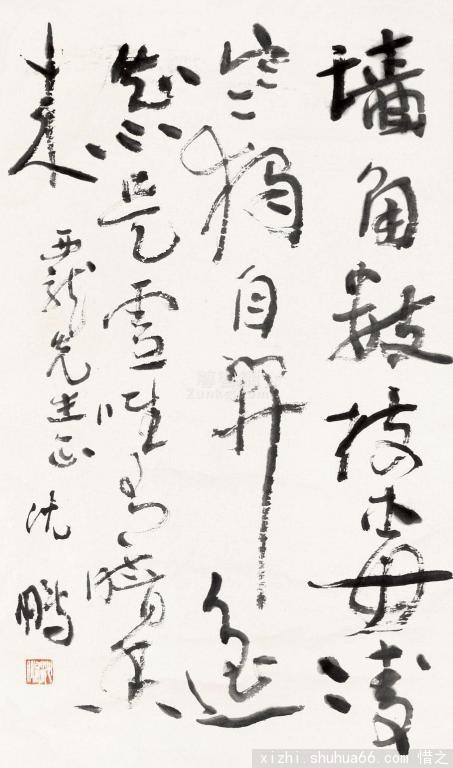 墙角數枝梅凌
寒独自開遥
知不是雪唯有暗香
来
西龍先生正 沈鵬
xizhi.shuhua66.com 惜之